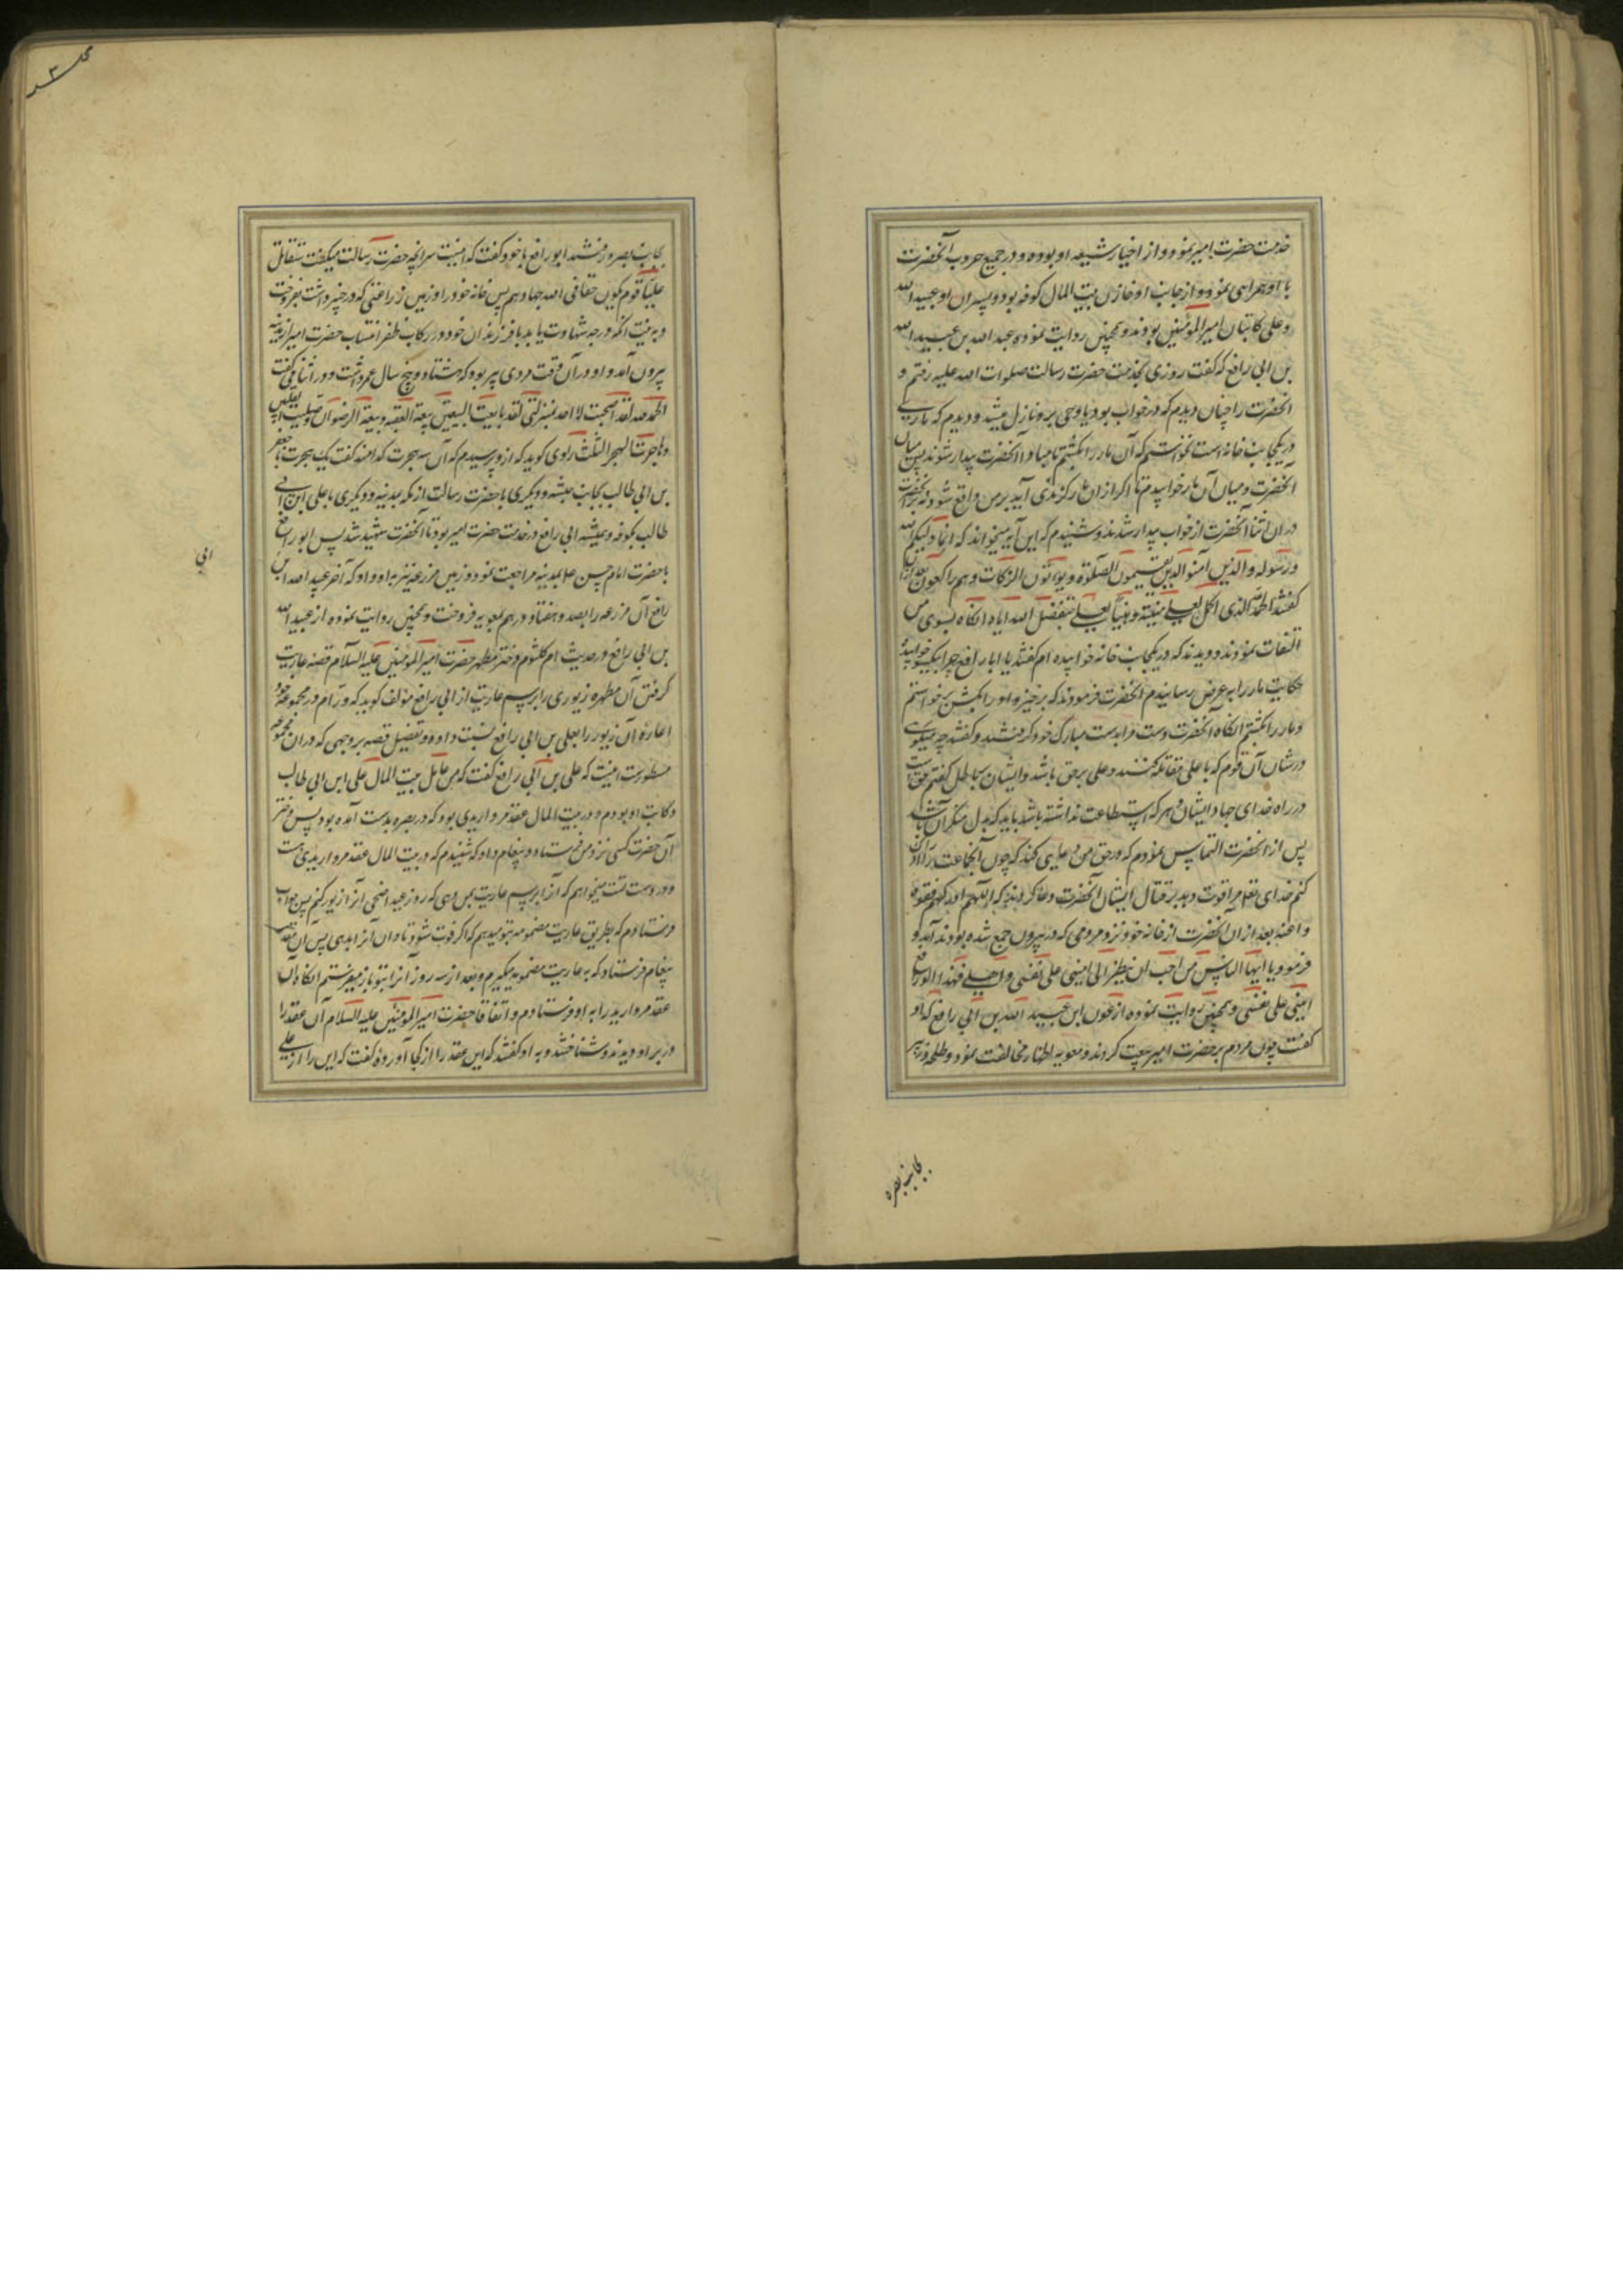 خدمت حضرت امیر نمود و از اخیار شیعه او بوده و در جمیع حروب آنحضرت
با او همراهی نمود و از جانب او خازن بیت المال کوفه بود و پسران او عبید الله
و علی کاتبان امیر المؤمنین بودند و همچنین روایت نموده عبد الله بن عبید الله
بن ابی رافع که گفت روزی بخدمت حضرت رسالت صلوات الله علیه رفتم و
آنحضرت را چنان دیدم که در خواب بود یا وحی برو نازل میشد و دیدم که ماری
در یکجانب خانه است نخواستم که آن مار را بکشم تا مبادا آنحضرت بیدار شوند پس میان
آنحضرت و میان آن مار خوابیدم تا اگر از ان مار گزندی آید بر من واقع شود نه بر آنحضرت
در ان اثنا آنحضرت از خواب بیدار شدند و شنیدم که این آیه میخواند که انما ولیکم الله
و رسوله و الذین آمنوا الذین یقیمون الصلوة و یؤتون الزکات و هم راکعون بعد ازان
گفتند الحمد لله الذی اکمل لعلی منیته و هنیئا لعلی بتفضیل الله ایاه انکاه بسوی من
التفات نمودند و دیدند که در یکجانب خانه خوابیده ام گفتند یا ابا رافع چرا اینجا خوابیدهٔ
حکایت مار را به عرض رسانیدم آنحضرت فرمودند که برخیز و او را بکش برخواستم
و مار را بکشتم انکاه آنحضرت دست مرا بدست مبارک خود گرفتند و گفتند چه میگوی
در شان آن قوم که با علی مقاتله کنند و علی بر حق باشد و ایشان بباطل گفتم حق است
در راه خدای جهاد ایشان و هر که استطاعت نداشته باشد باید که بدل منکر آن باشد
پس از آنحضرت التماس نمودم که در حق من دعایی کند که چون آنجماعت را ادراک
کنم خدای تعالی مرا قوت دهد بر قتال ایشان آنحضرت دعا کردند که اللهم ان ادرکهم فقوه
و اعنه بعد از ان آنحضرت از خانه خود نزد مردمی که در بیرون جمع شده بودند آمد و
فرمود یا ایها الناس من احب ان ینظر الی امینی علی نفسی و اهلی فهذا ابو رافع
امینی علی نفسی و همچنین روایت نموده از عون ابن عبید الله بن ابی رافع که او
گفت چون مردم بر حضرت امیر بیعت کردند و معویه اظهار مخالفت نمود و طلحه و زبیر
بجانب بصره
بجانب بصره رفتند ابو رافع با خود گفت که اینست سر آنچه حضرت رسالت میگفت ستقاتل
علیا قوم یکون حقا فی الله جهادهم پس خانه خود را و زمین زراعتی که در خیبر داشت بفروخت
و به نیت آنکه درجه شهادت یابد با فرزندان خود در رکاب ظفر انتساب حضرت امیر از مدینه
بیرون آمد و او در آن وقت مردی پیر بود که هشتاد و پنج سال عمر داشت و در اثنا می گفت
الحمد لله لقد اصبحت لا احد بمنزلتی لقد بایعت البیعتین بیعة العقبه و بیعة الرضوان و صلیت القبلتین
و هاجرت الهجر الثلث راوی گوید که ازو پرسیدم که آن سه هجرت کدامند گفت یک هجرت با جعفر
بن ابی طالب بجانب حبشه و دیگری با حضرت رسالت از مکه بمدینه و دیگری با علی ابن ابی
طالب بکوفه و همیشه ابی رافع در خدمت حضرت امیر بود تا آنحضرت شهید شد پس ابو رافع
با حضرت امام حسن ع بمدینه مراجعت نمود و زمین مزرعه نیز به او داد که آخر عبید الله ابن
ابی
رافع آن مزرعه را بصد و هفتاد درهم بمعویه فروخت و همچنین روایت نموده از عبید الله
بن ابی رافع در حدیث ام کلثوم دختر مطهر حضرت امیر المؤمنین علیه السلام قصه عاریت
گرفتن آن مطهره زیوری را برسم عاریت از ابی رافع مؤلف گوید که ورام در مجموعه خود
اعارهٔ آن زیور را بعلی بن ابی رافع نسبت داده و تفصیل قصه بر وجهی که در ان مجموعه
مسطورست اینست که علی بن ابی رافع گفت که من عامل بیت المال علی ابن ابی طالب
و کاتب او بودم و در بیت المال عقد مرواریدی بود که در بصره بدست آمده بود پس دختر
آن حضرت کسی نزد من فرستاد و پیغام داد که شنیدم که در بیت المال عقد مرواریدی هست
و در دست تست میخواهم که آنرا برسم عاریت بمن دهی که روز عید اضحی آنرا زیور کنم پس جواب
فرستادم که بطریق عاریت مضمونه بتو میدهم که اگر فوت شود تاوان آنرا بدهی پس آن مقدسه
پیغام فرستاد که به عاریت مضمونه میگیرم و بعد از سه روز آنرا بتو باز میفرستم انکاه آن
عقد مروارید را به او فرستادم و اتفاقا حضرت امیر المؤمنین علیه السلام آن عقد را
در بر او دیدند و شناختند و به او گفتند که این عقد را از کجا آوردهٔ گفت که این را از علی